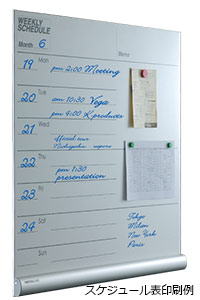 WEEKLY
SCHEDULE
Month 6
Memo
19 Mon
pm 2:00 Meeting
20 Tue
am 10:30 Yoga
pm 4:00 K products
21 Wed
official
22 Thu
pm 1:30
presentation
23 Fri
24 Sat
Sun
Tokyo
Milan
New York
Paris
スケジュール表印刷例